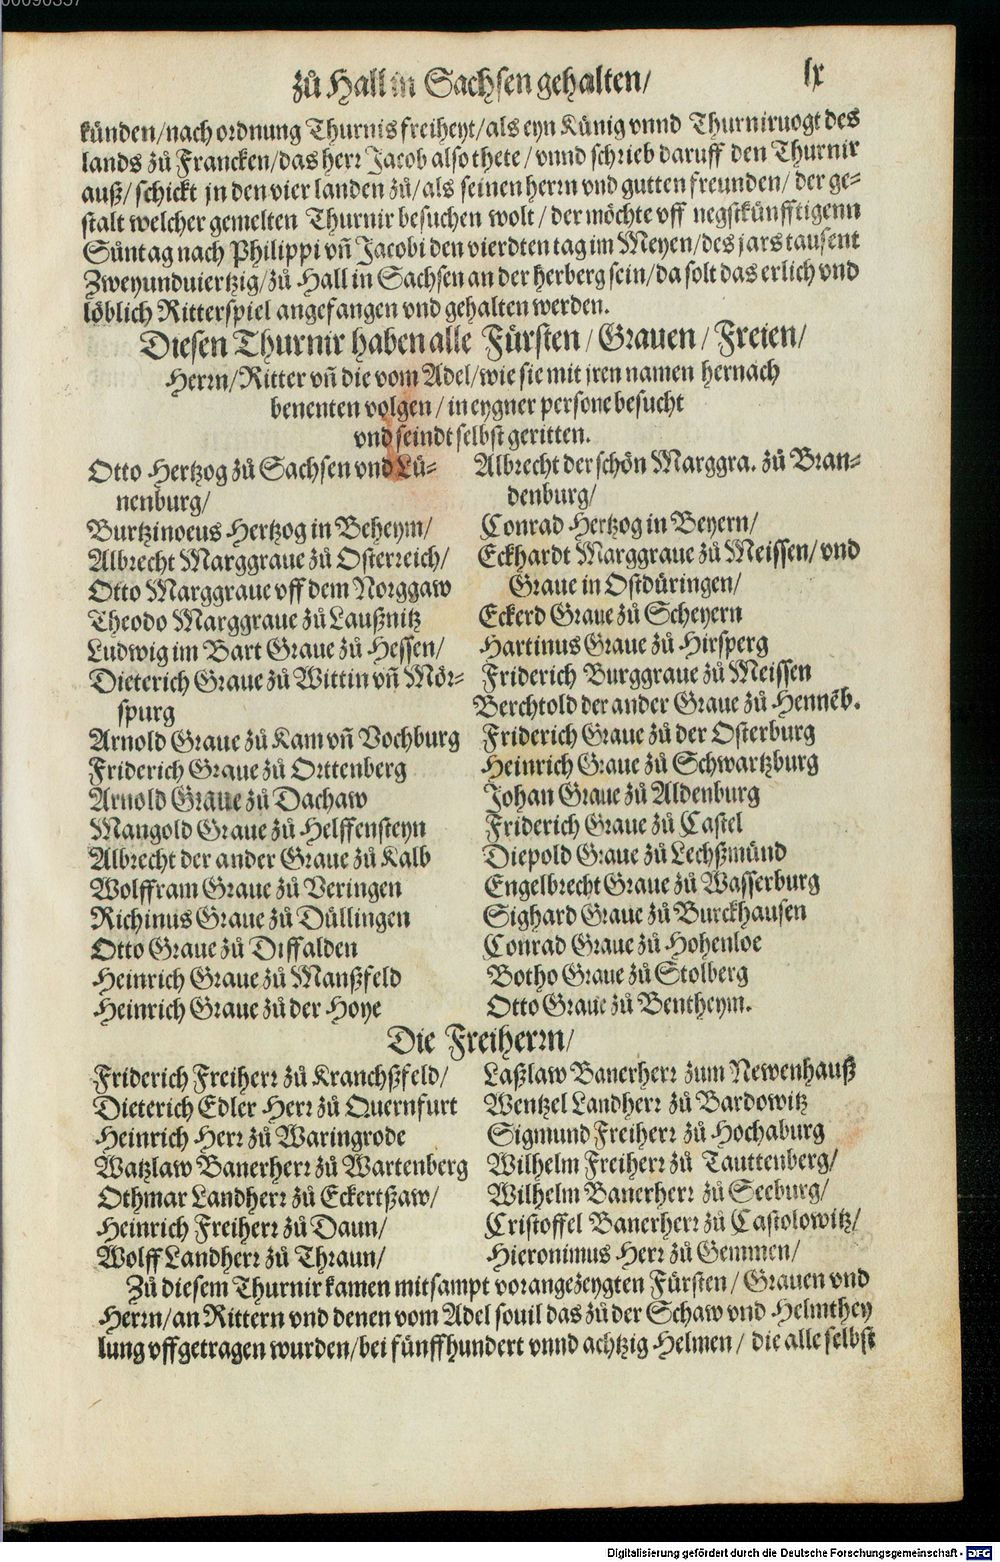 zů Hall in Sachsen gehalten/ lx
künden/nach ordnung Thurnis freiheyt/als eyn Künig vnnd Thurniruogt des
lands zů Francken/das herr Jacob also thete/vnnd schrieb daruff den Thurnir
auß/schickt jn den vier landen zů/als seinen herrn vnd gutten freunden/der ge⸗
stalt welcher gemelten Thurnir besuchen wolt/der möchte vff negstkünfftigenn
Suntag nach Philippi vñ Jacobi den vierdten tag im Meyen/des jars tausent
Zweyunduiertzig/zů Hall in Sachsen an der herberg sein/da solt das erlich vnd
löblich Ritterspiel angefangen vnd gehalten werden.
Diesen Thurnir haben alle Fürsten/Grauen/Freien/
Herrn/Ritter vñ die vom Adel/wie sie mit jren namen hernach
benenten volgen/in eygner persone besucht
vnd seindt selbst geritten.
Otto Hertzog zů Sachsen vnd Lü⸗
nenburg/
Burtzinoeus Hertzog in Beheym/
Albrecht Marggraue zů Osterreich/
Otto Marggraue vff dem Norggaw
Theodo Marggraue zů Laußnitz
Ludwig im Bart Graue zů Hessen/
Dieterich Graue zů Wittin vñ Mör⸗
spurg
Arnold Graue zů Kam vñ Vochburg
Friderich Graue zů Orttenberg
Arnold Graue zů Dachaw
Mangold Graue zů Helffensteyn
Albrecht der ander Graue zů Kalb
Wolffram Graue zů Veringen
Richinus Graue zů Düllingen
Otto Graue zů Diffalden
Heinrich Graue zů Manßfeld
Heinrich Graue zů der Hoye
Albrecht der schön Marggra. zů Bran⸗
denburg/
Conrad Hertzog in Beyern/
Eckhardt Marggraue zů Meissen/vnd
Graue in Ostdüringen/
Eckerd Graue zů Scheyern
Hartinus Graue zů Hirsperg
Friderich Burggraue zů Meissen
Berchtold der ander Graue zů Hennẽb.
Friderich Graue zů der Osterburg
Heinrich Graue zů Schwartzburg
Johan Graue zů Aldenburg
Friderich Graue zů Castel
Diepold Graue zů Lechßmünd
Engelbrecht Graue zů Wasserburg
Sighard Graue zů Burckhausen
Conrad Graue zů Hohenloe
Botho Graue zů Stolberg
Otto Graue zů Bentheym.
Die Freiherrn/
Friderich Freiherr zů Kranchßfeld/
Dieterich Edler Herr zů Quernfurt
Heinrich Herr zů Waringrode
Watzlaw Banerherr zů Wartenberg
Othmar Landherr zů Eckertßaw/
Heinrich Freiherr zů Daun/
Wolff Landherr zů Thraun/
Laßlaw Banerherr zum Newenhauß
Wentzel Landherr zů Bardowitz
Sigmund Freiherr zů Hochaburg
Wilhelm Freiherr zů Tauttenberg/
Wilhelm Banerherr zů Seeburg/
Cristoffel Banerherr zů Castolowitz/
Hieronimus Herr zů Gemmen/
Zů diesem Thurnir kamen mitsampt vorangezeygten Fürsten/Grauen vnd
Herrn/an Rittern vnd denen vom Adel souil das zů der Schaw vnd Helmthey
lung vffgetragen wurden/bei fünffhundert vnnd achtzig Helmen/die alle selbst
Digitalisierung gefördert durch die Deutsche Forschungsgemeinschaft - DFG